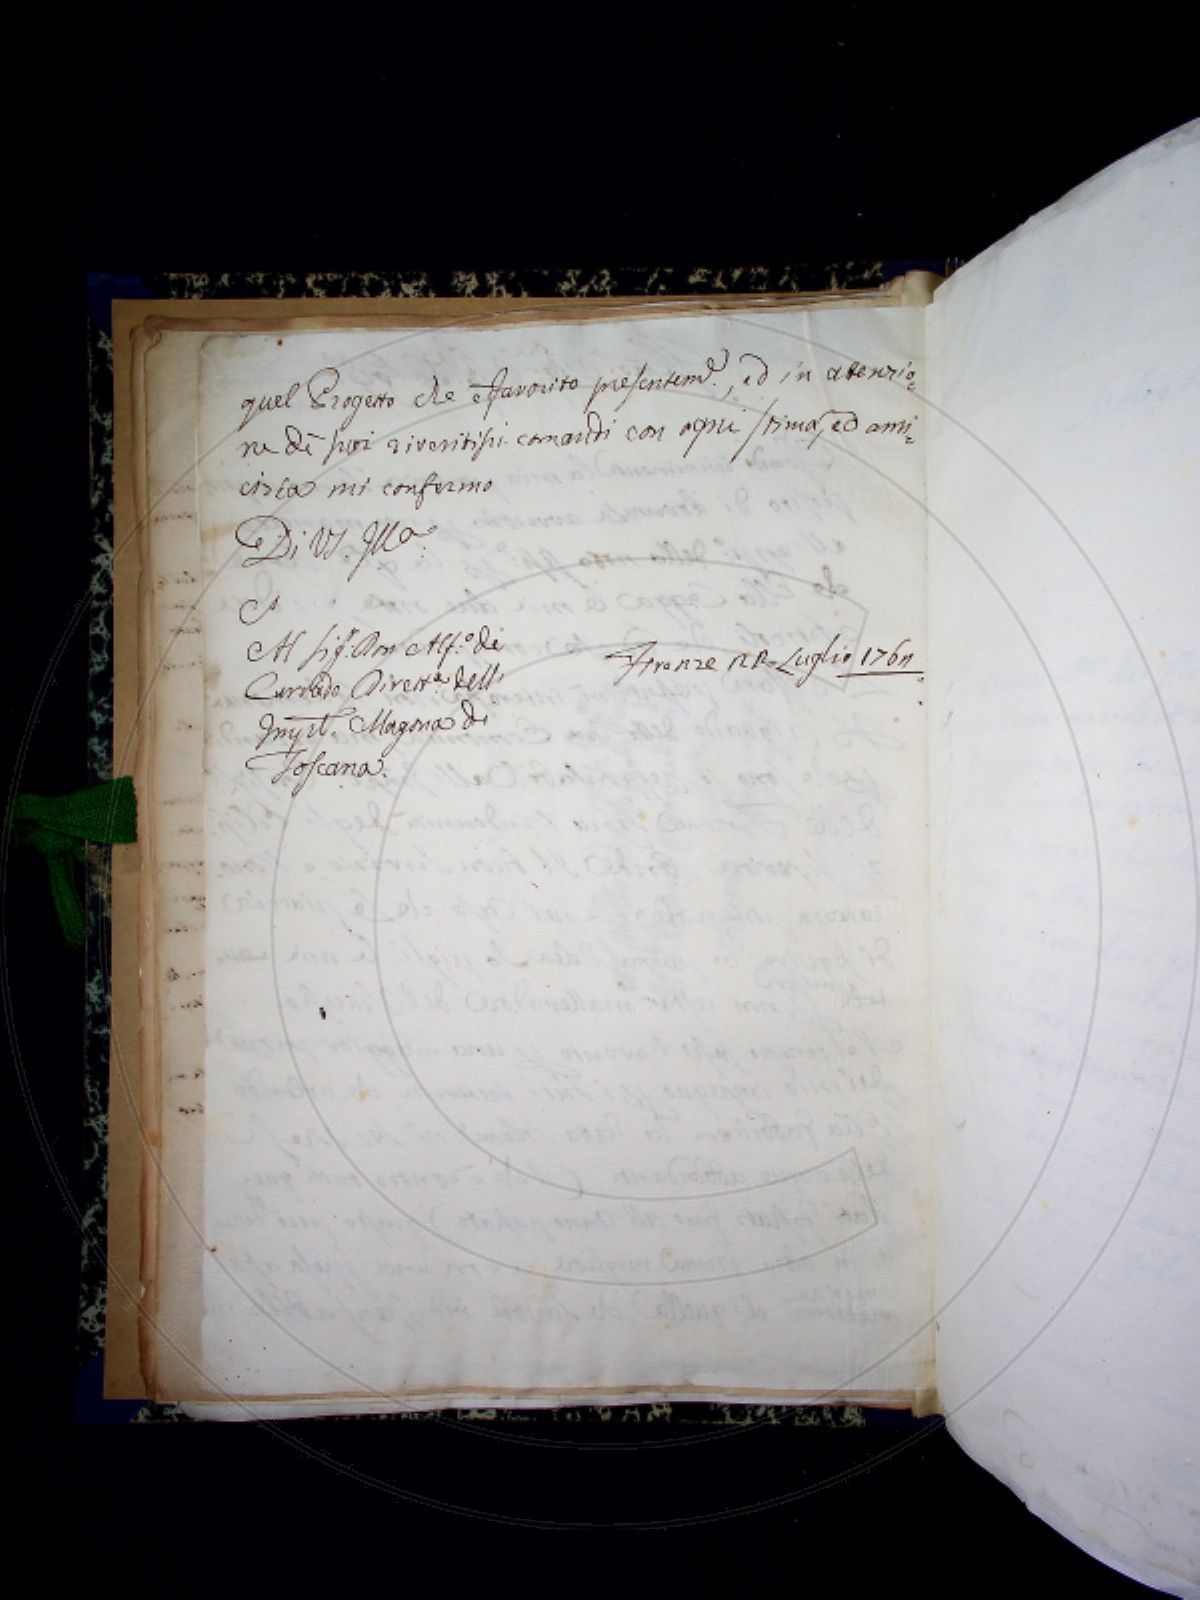 quel Progetto che è favorito presentem.e, ed in attenzio=
ne de suoi riveritis.i comandi con ogni stima, ed ami=
cizia mi confermo
Di VS. Ill.a
Al Sig.r Don Alf.o de
Direr.e dell'
Magona di
Toscana.
Firenze Luglio